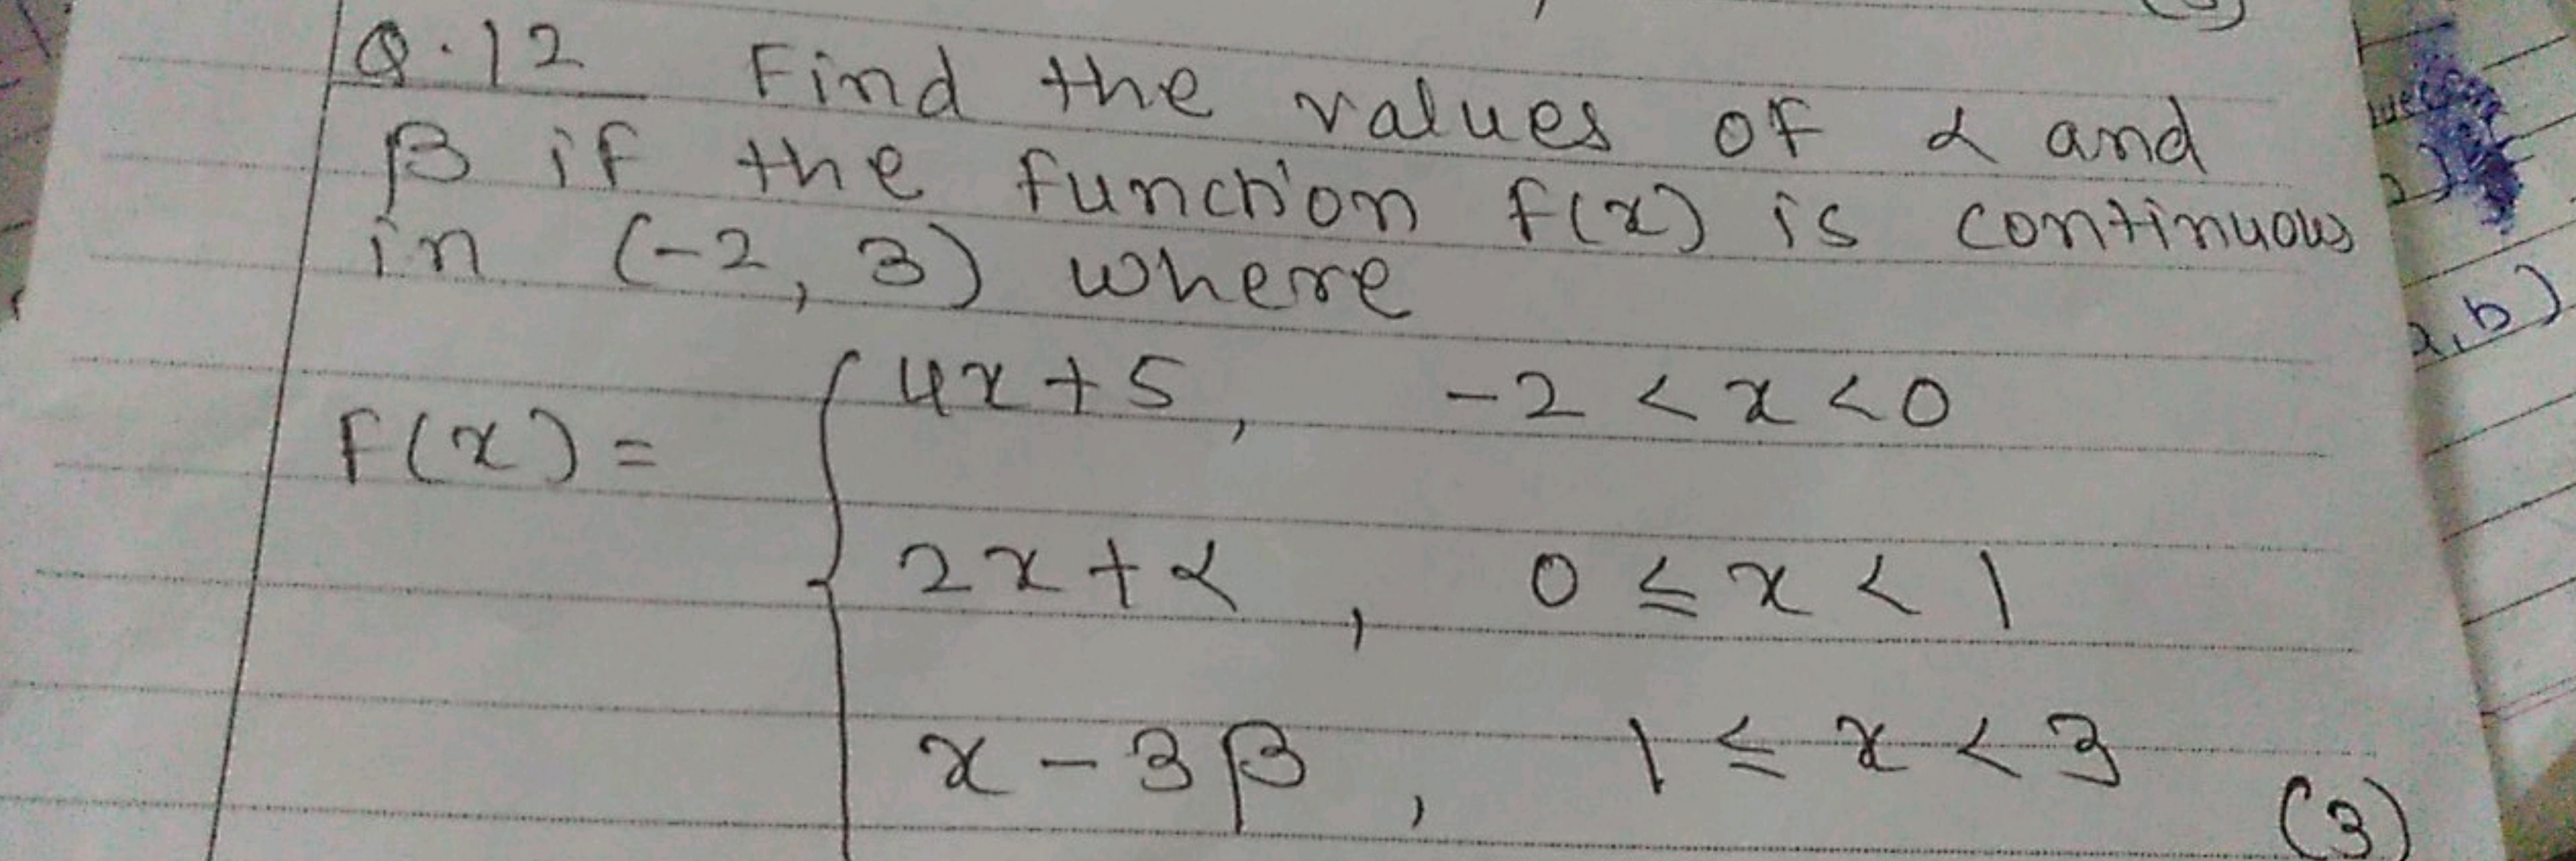 Q.12 Find the values of α and
β if the function f(x) is continuous
in (-2, 3) where
f(x) = { 4x+5, -2 < x < 0
2x+α, 0 ≤ x < 1
x-3β, 1 ≤ x < 3
(3)
a,b)